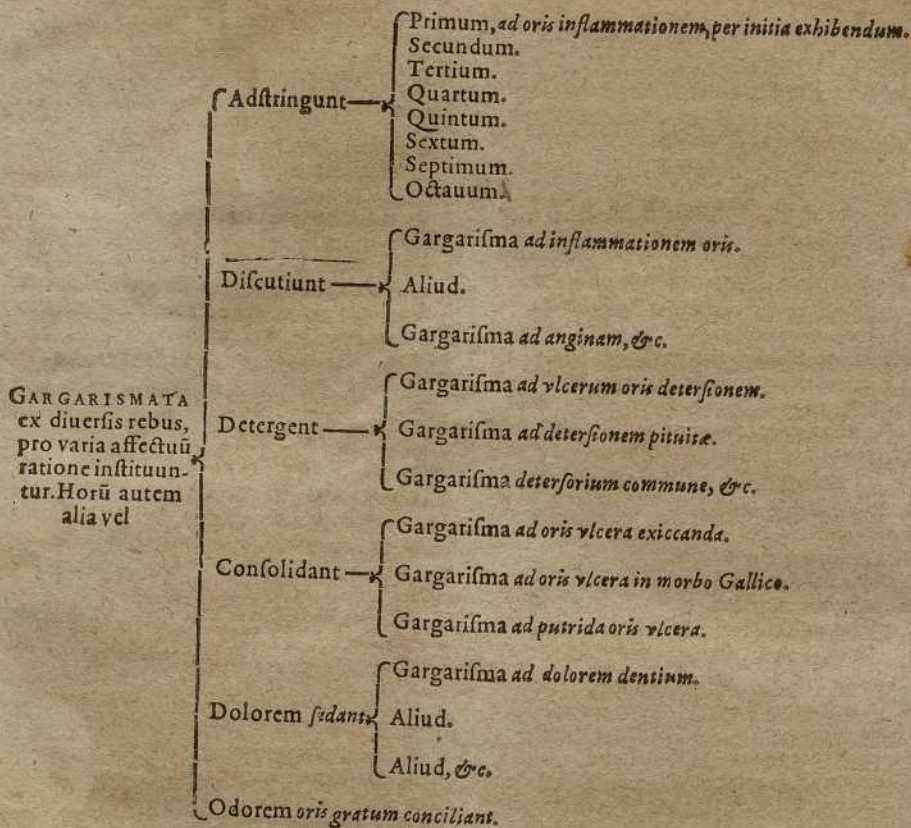 GARGARISMATA
ex diuersis rebus,
pro varia affectuū
ratione instituun-
tur. Horū autem
alia vel
Adſtringunt
Primum, ad oris inflammationem, per initia exhibendum.
Secundum.
Tertium.
Quartum.
Quintum.
Sextum.
Septimum.
Octauum.
Diſcutiunt
Gargariſma ad inflammationem oris.
Aliud.
Gargariſma ad anginam, &c.
Detergent
Gargariſma ad vlcerum oris deterſionem.
Gargariſma ad deterſionem pituitæ.
Gargariſma deterſorium commune, &c.
Conſolidant
Gargariſma ad oris vlcera exiccanda.
Gargariſma ad oris vlcera in morbo Gallico.
Gargariſma ad putrida oris vlcera.
Dolorem ſedant
Gargariſma ad dolorem dentium.
Aliud.
Aliud, &c.
Odorem oris gratum conciliant.